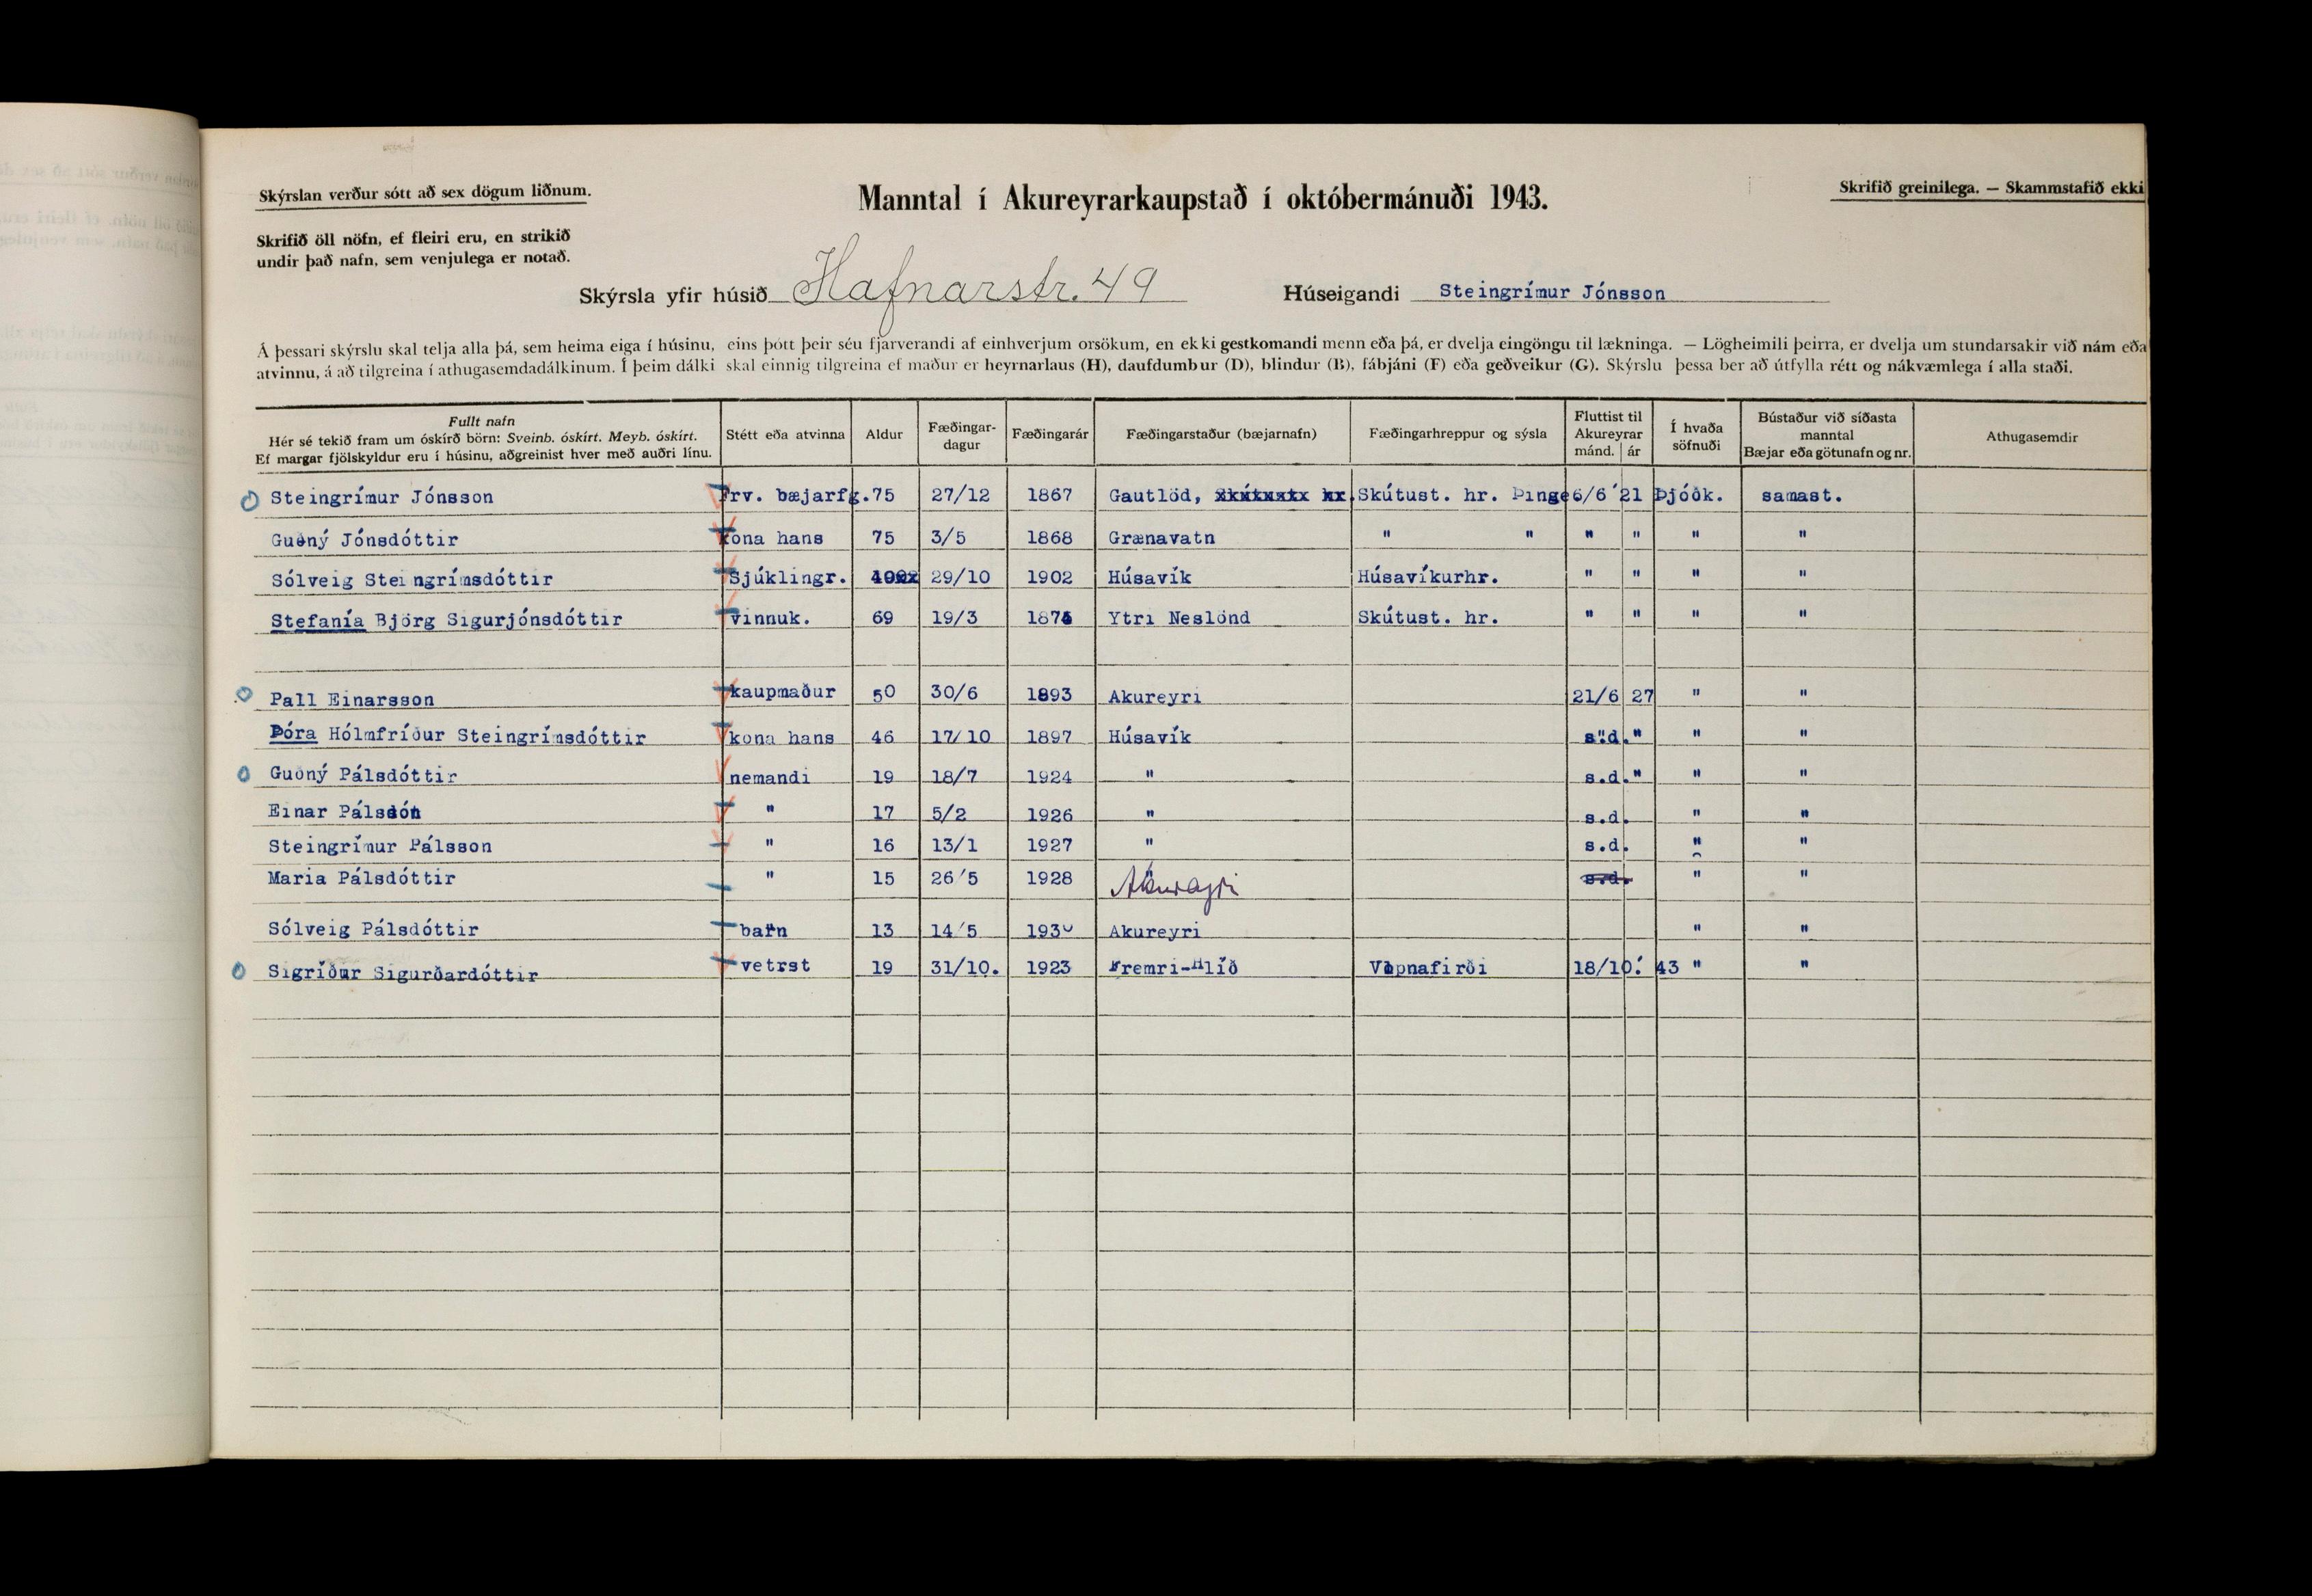 Skýrslan verður sótt að sex dögum liðnum.
Manntal í Akureyrarkaupstað í októbermánuði 1943.
Skrifið greinilega. — Skammstafið ekki
Skrifið öll nöfn, ef fleiri eru, en strikið
undir það nafn, sem venjulega er notað.
Skýrsla yfir húsið Hafnarstr. 49 Húseigandi Steingrímur Jónsson
Á þessari skýrslu skal telja alla þá, sem heima eiga í húsinu, eins þótt þeir séu fjarverandi af einhverjum orsökum, en ekki gestkomandi menn eða þá, er dvelja eingöngu til lækninga. — Lögheimili þeirra, er dvelja um stundarsakir við nám eða
atvinnu, á að tilgreina í athugasemdadálkinum. Í þeim dálki skal einnig tilgreina ef maður er heyrnarlaus (H), daufdumbur (D), blindur (B), fábjáni (F) eða geðveikur (G). Skýrslu þessa ber að útfylla rétt og nákvæmlega í alla staði.
Fullt nafn
Hér sé tekið fram um óskírð börn: Sveinb. óskírt. Meyb. óskírt.
Ef margar fjölskyldur eru í húsinu, aðgreinist hver með auðri línu.
Stétt eða atvinna
Aldur
Fæðingar-
dagur
Fæðingarár
Fæðingarstaður (bæjarnafn)
Fæðingarhreppur og sýsla
Fluttist til
Akureyrar
mánd. ár
Í hvaða
söfnuði
Bústaður við síðasta
manntal
Bæjar eða götunafn og nr.
Athugasemdir
Steingrímur Jónsson Frv. bæjarfg. 75 27/12 1867 Gautlöd, Skútust. hr. Þinge 6/6 '21 Þjóðk. samast.
Guðný Jónsdóttir kona hans 75 3/5 1868 Grænavatn " " " " " "
Sólveig Steingrímsdóttir Sjúklingr. 29/10 1902 Húsavík Húsavíkurhr. " " " "
Stefanía Björg Sigurjónsdóttir vinnuk. 69 19/3 Ytri Neslönd Skútust. hr. " " " "
Pall Einarsson kaupmaður 50 30/6 1893 Akureyri 21/6 27 " "
Þóra Hólmfríður Steingrímsdóttir kona hans 46 17/10 1897 Húsavík s.d. " " "
Guðný Pálsdóttir nemandi 19 18/7 1924 " s.d. " " "
Einar Pálsson " 17 5/2 1926 " s.d. " "
Steingrímur Pálsson " 16 13/1 1927 " s.d. " "
Maria Pálsdóttir " 15 26/5 1928 Akureyri s.d. " "
Sólveig Pálsdóttir barn 13 14/5 1930 Akureyri " "
Sigríður Sigurðardóttir vetrst 19 31/10. 1923 Fremri-Hlíð Vopnafirði 18/10.' 43 " "